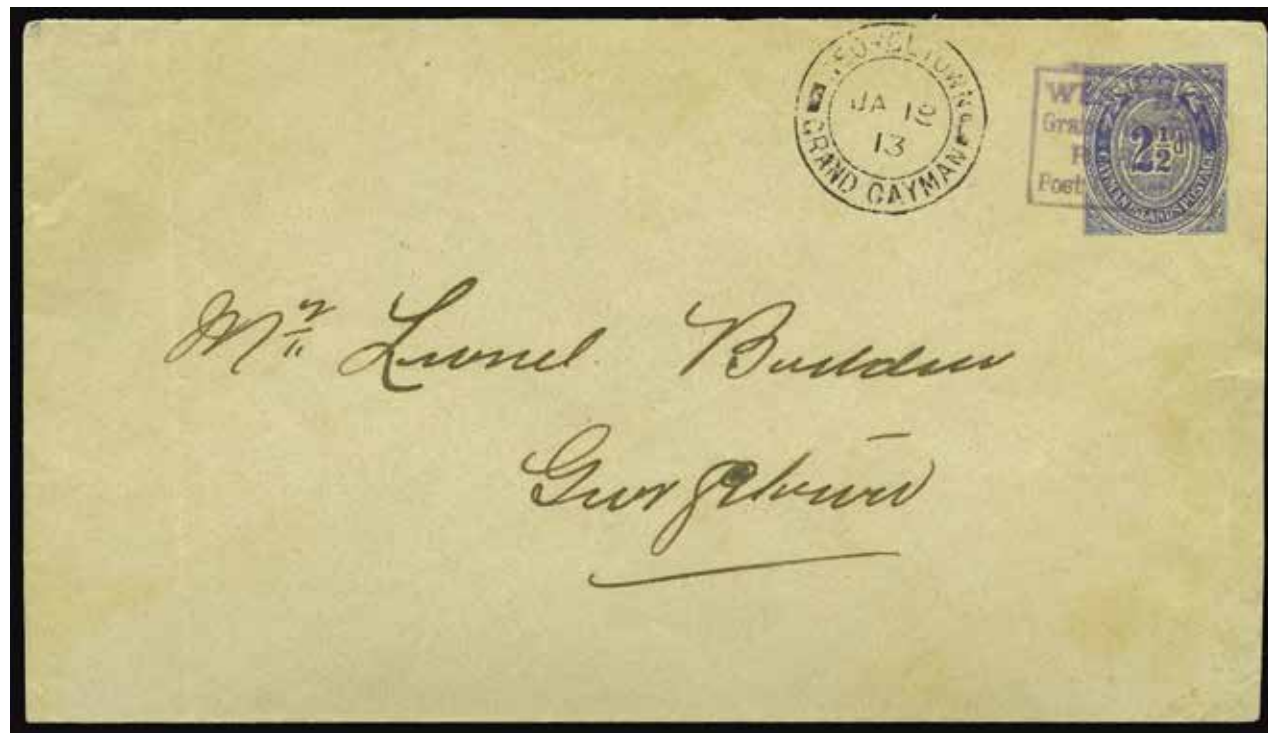 GEORGETOWN
JA 18
13
GRAND CAYMAN
2½d
CAYMAN ISLANDS POSTAGE
Mr Lionel Bodden
Georgetown